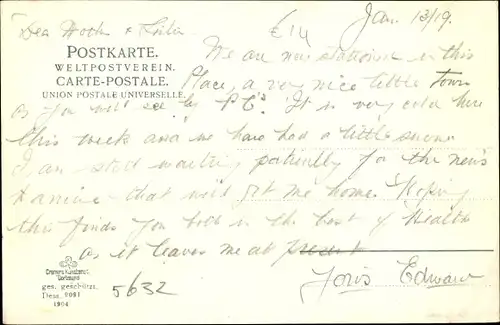 Jan. 13/19.
£14
Dear Moth & Sister
We are now stationed in this
POSTKARTE.
WELTPOSTVEREIN.
Place, a very nice little town
CARTE-POSTALE.
UNION POSTALE UNIVERSELLE.
as you will see by P.C's. It is very cold here
this week and we have had a little snow
I am still waiting patiently for the news
that will get me home. Hoping
this finds you both in the best of Health
as it leaves me at present
Dess. 9081
1904
ges. geschützt.
5632
Edward